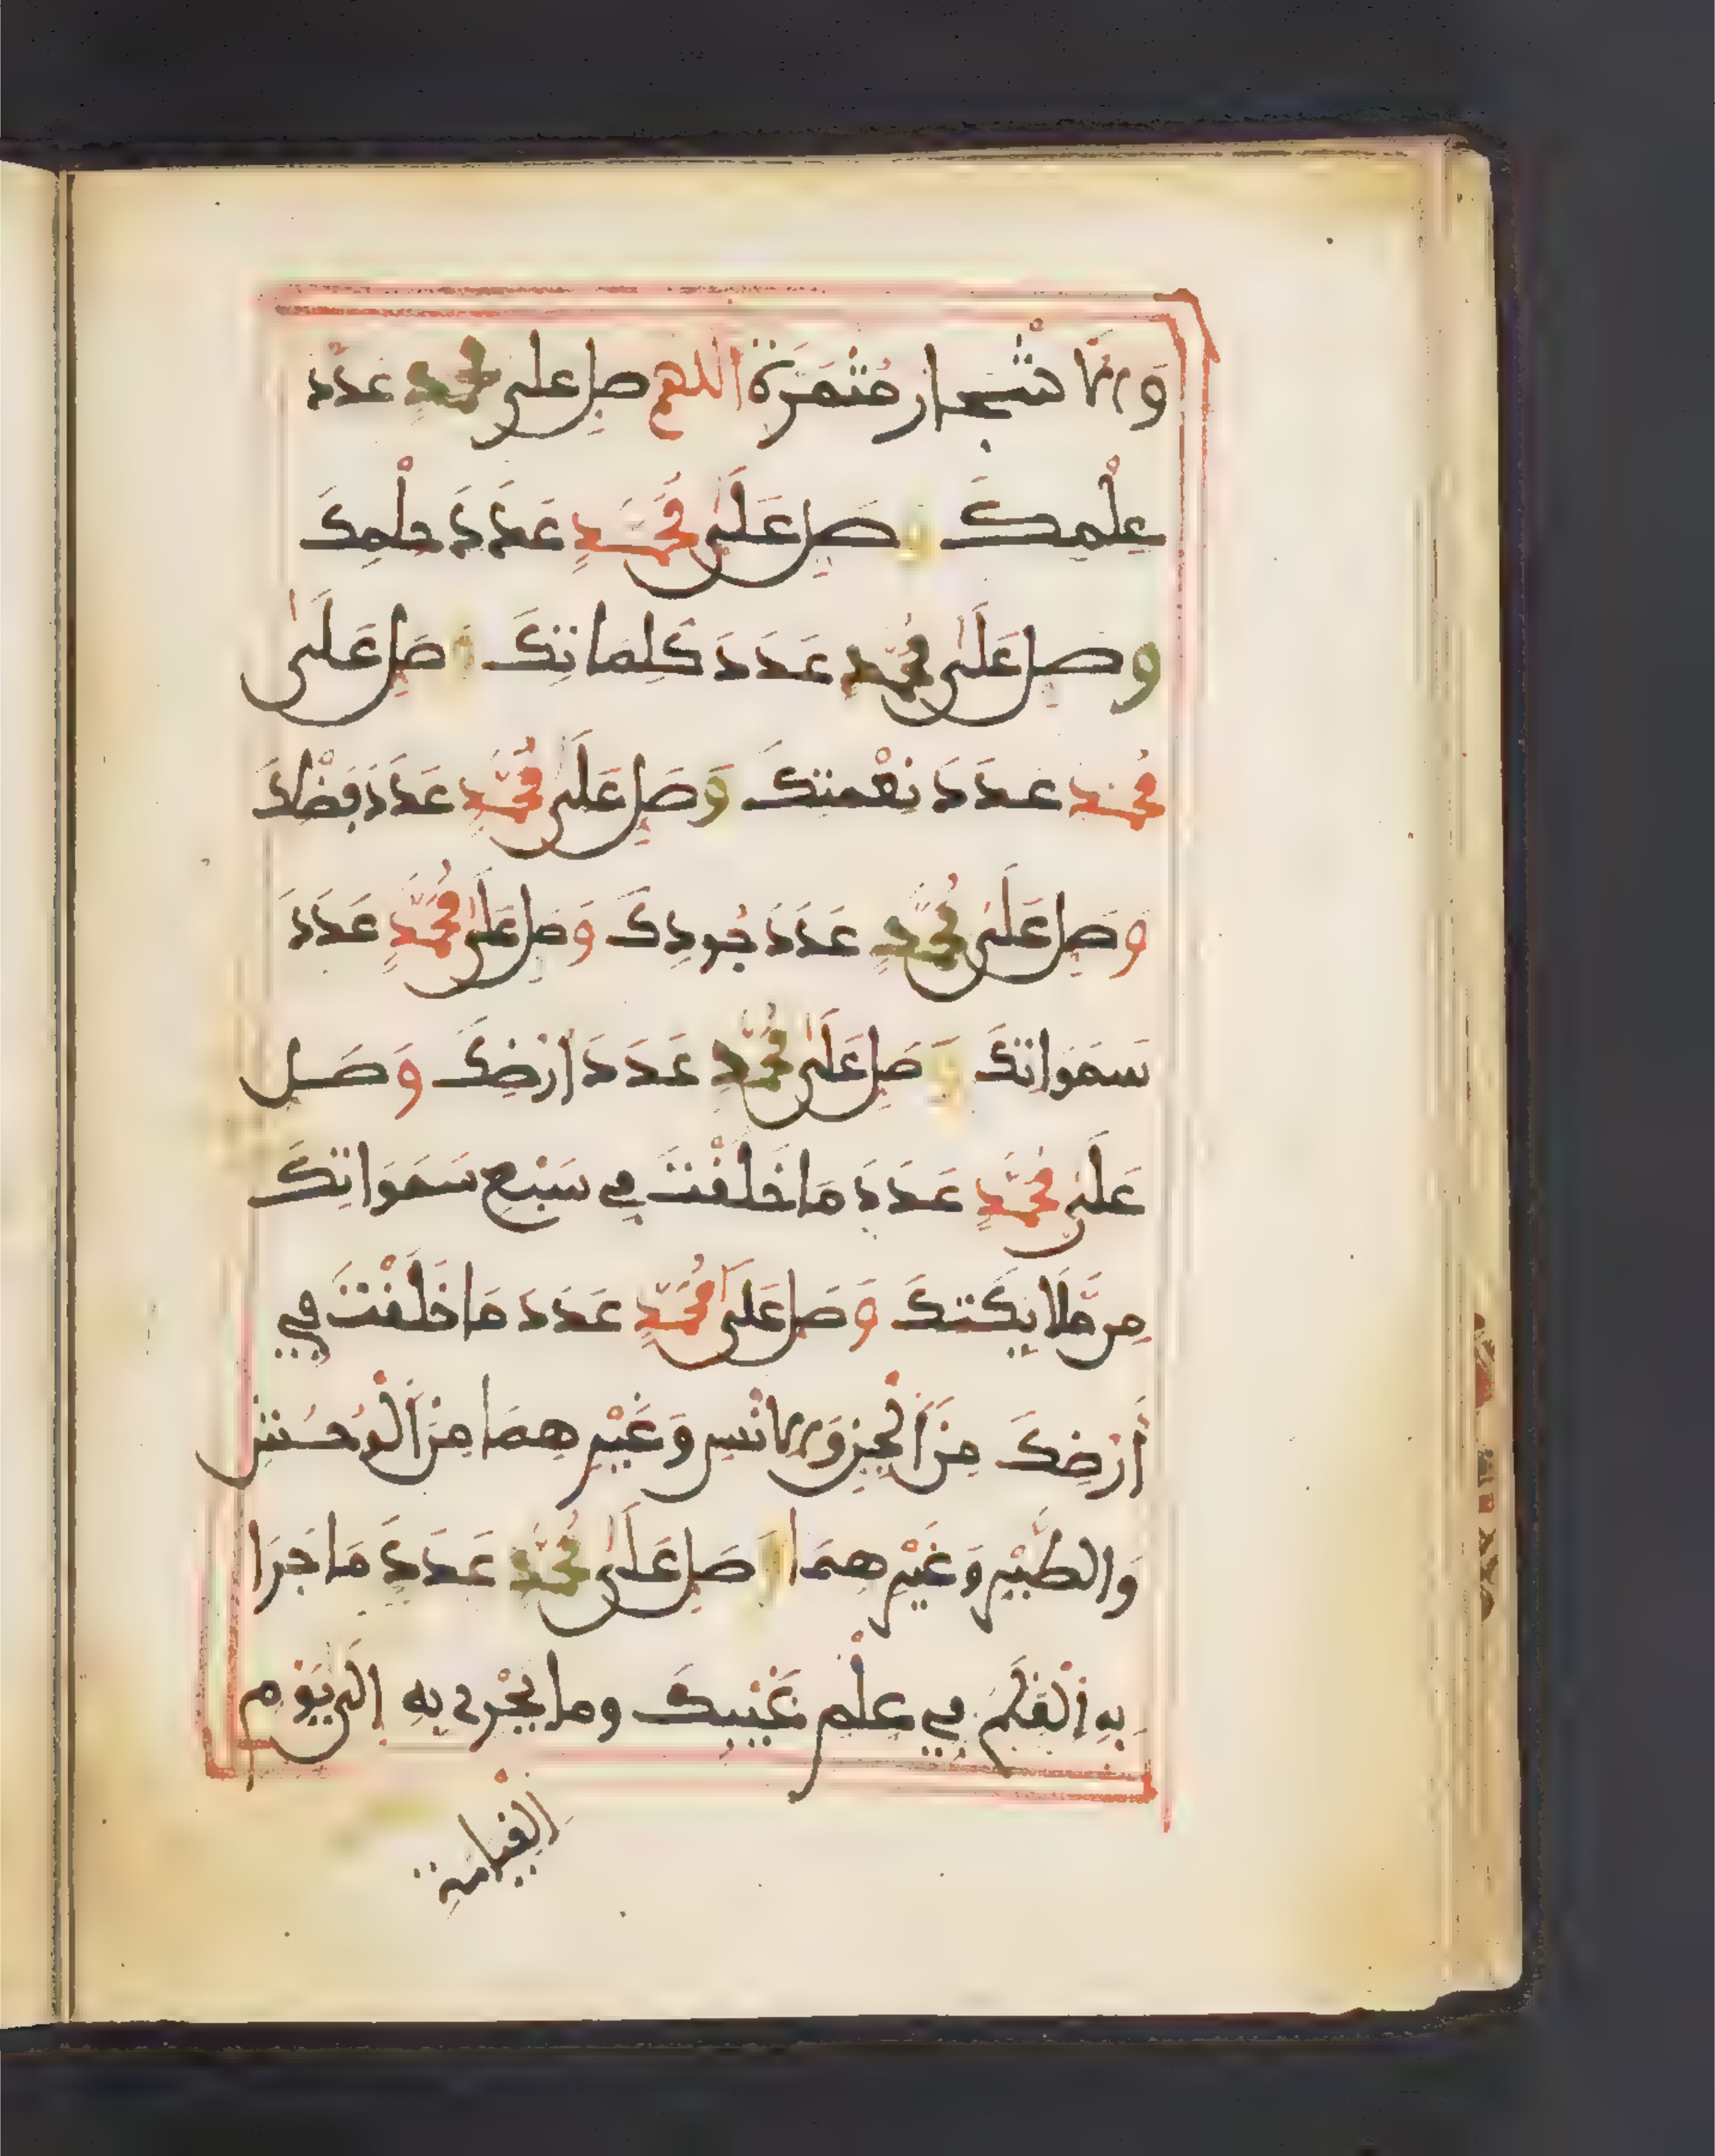 وَالاَشْجَار مُثْمَرَةً اللهم صل على محمدٍ عدَدَ
عِلْمِكَ وَصَلِ عَلَىٰ مُحَمَّدٍ عَدَدَ حِلْمِكَ
وصَلِ عَلَىٰ مُحَمَّدٍ عَدَدَ كَلِمَاتِكَ وَصَلِ عَلَىٰ
مُحَمَّدٍ عَدَدَ نِعْمَتِكَ وَصَلِ عَلَىٰ مُحَمَّدٍ عَدَدَ فَضْلِكَ
وصَلِ عَلَىٰ مُحَمَّدٍ عَدَدَ جُودِكَ وَصَلِ عَلَىٰ مُحَمَّدٍ عَدَدَ
سَمَوَاتِكَ وَصَلِ عَلَىٰ مُحَمَّدٍ عَدَدَ اَرْضِكَ وَصَلِ
عَلَىٰ مُحَمَّدٍ عَدَدَ مَا خَلَقْتَ فِي سَبْعِ سَمَوَاتِكَ
مِن مَّلَايِكَتِكَ وَصَلِ عَلَىٰ مُحَمَّدٍ عَدَدَ مَا خَلَقْتَ فِي
أَرْضِكَ مِنَ الْجِنِ وَالاِنْسِ وَغَيْرِ هِمَا مِنَ الْوُحُشِ
وَالطَّيْرِ وَغَيْرِ هِمَا وَصَلِ عَلَىٰ مُحَمَّدٍ عَدَدَ مَا جَرَا
بِهِ الْقَلَمُ فِي عِلْمِ غَيْبِكَ وما يَجْرِى بِهِ إِلَى يَوْمِ
الْقِيَامَةِ